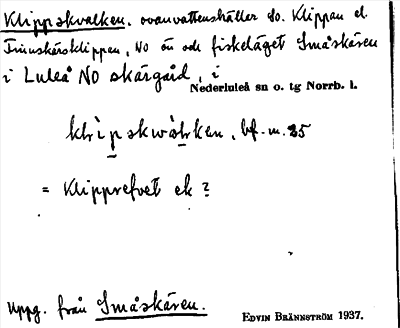 Klippskvalken. ovanvattenshäller So. Klippan el.
Trinnskärsklippen, NO ön och fiskeläget Småskären
i Luleå NO skärgård, i
Nederluleå sn o. tg Norrb. l.
bf. m. 85
= Klipprefvet ek ?
Uppg. från Småskären.
EDVIN BRÄNNSTRÖM 1937.